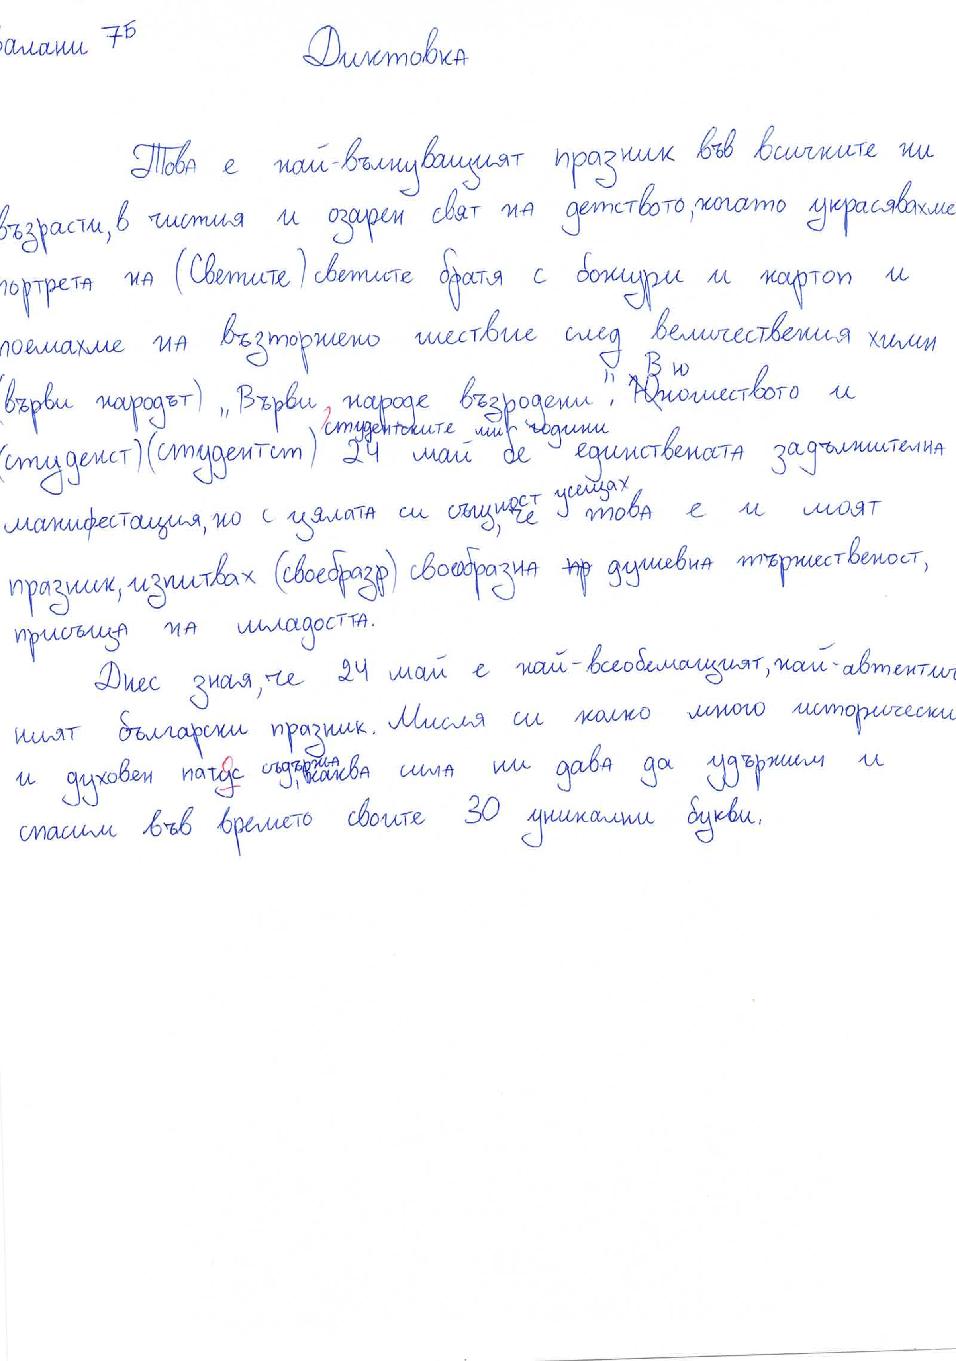 алани 7Б
Диктовка
Това е най-вълнуващият празник във всичките ни
възрасти, в чистия и озарен свят на детството, когато украсявахме
портрета на (Светите) светите братя с божури и картон и
поемахме на възторжено шествие след величествения химн
(върви народът) „Върви, народе възродени". В юношеството и
студентските ми години
(студенст) (студентст) 24 май бе единствената задължителна
манифестация, но с цялата си същност усещах, че това е и моят
празник, изпитвах (своебразр) своеобразна пр душевна тържественост,
присъща на младостта.
Днес зная, че 24 май е най-всеобемащият, най-автентич
ният български празник. Мисля си колко много исторически
и духовен патос съдържа, каква сила ни дава да удържим и
спасим във времето своите 30 уникални букви.